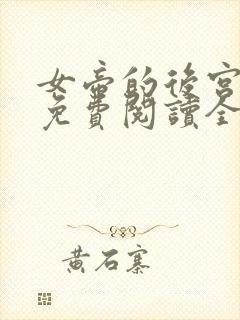 女帝的後宮
免費閱讀全
黃石寨